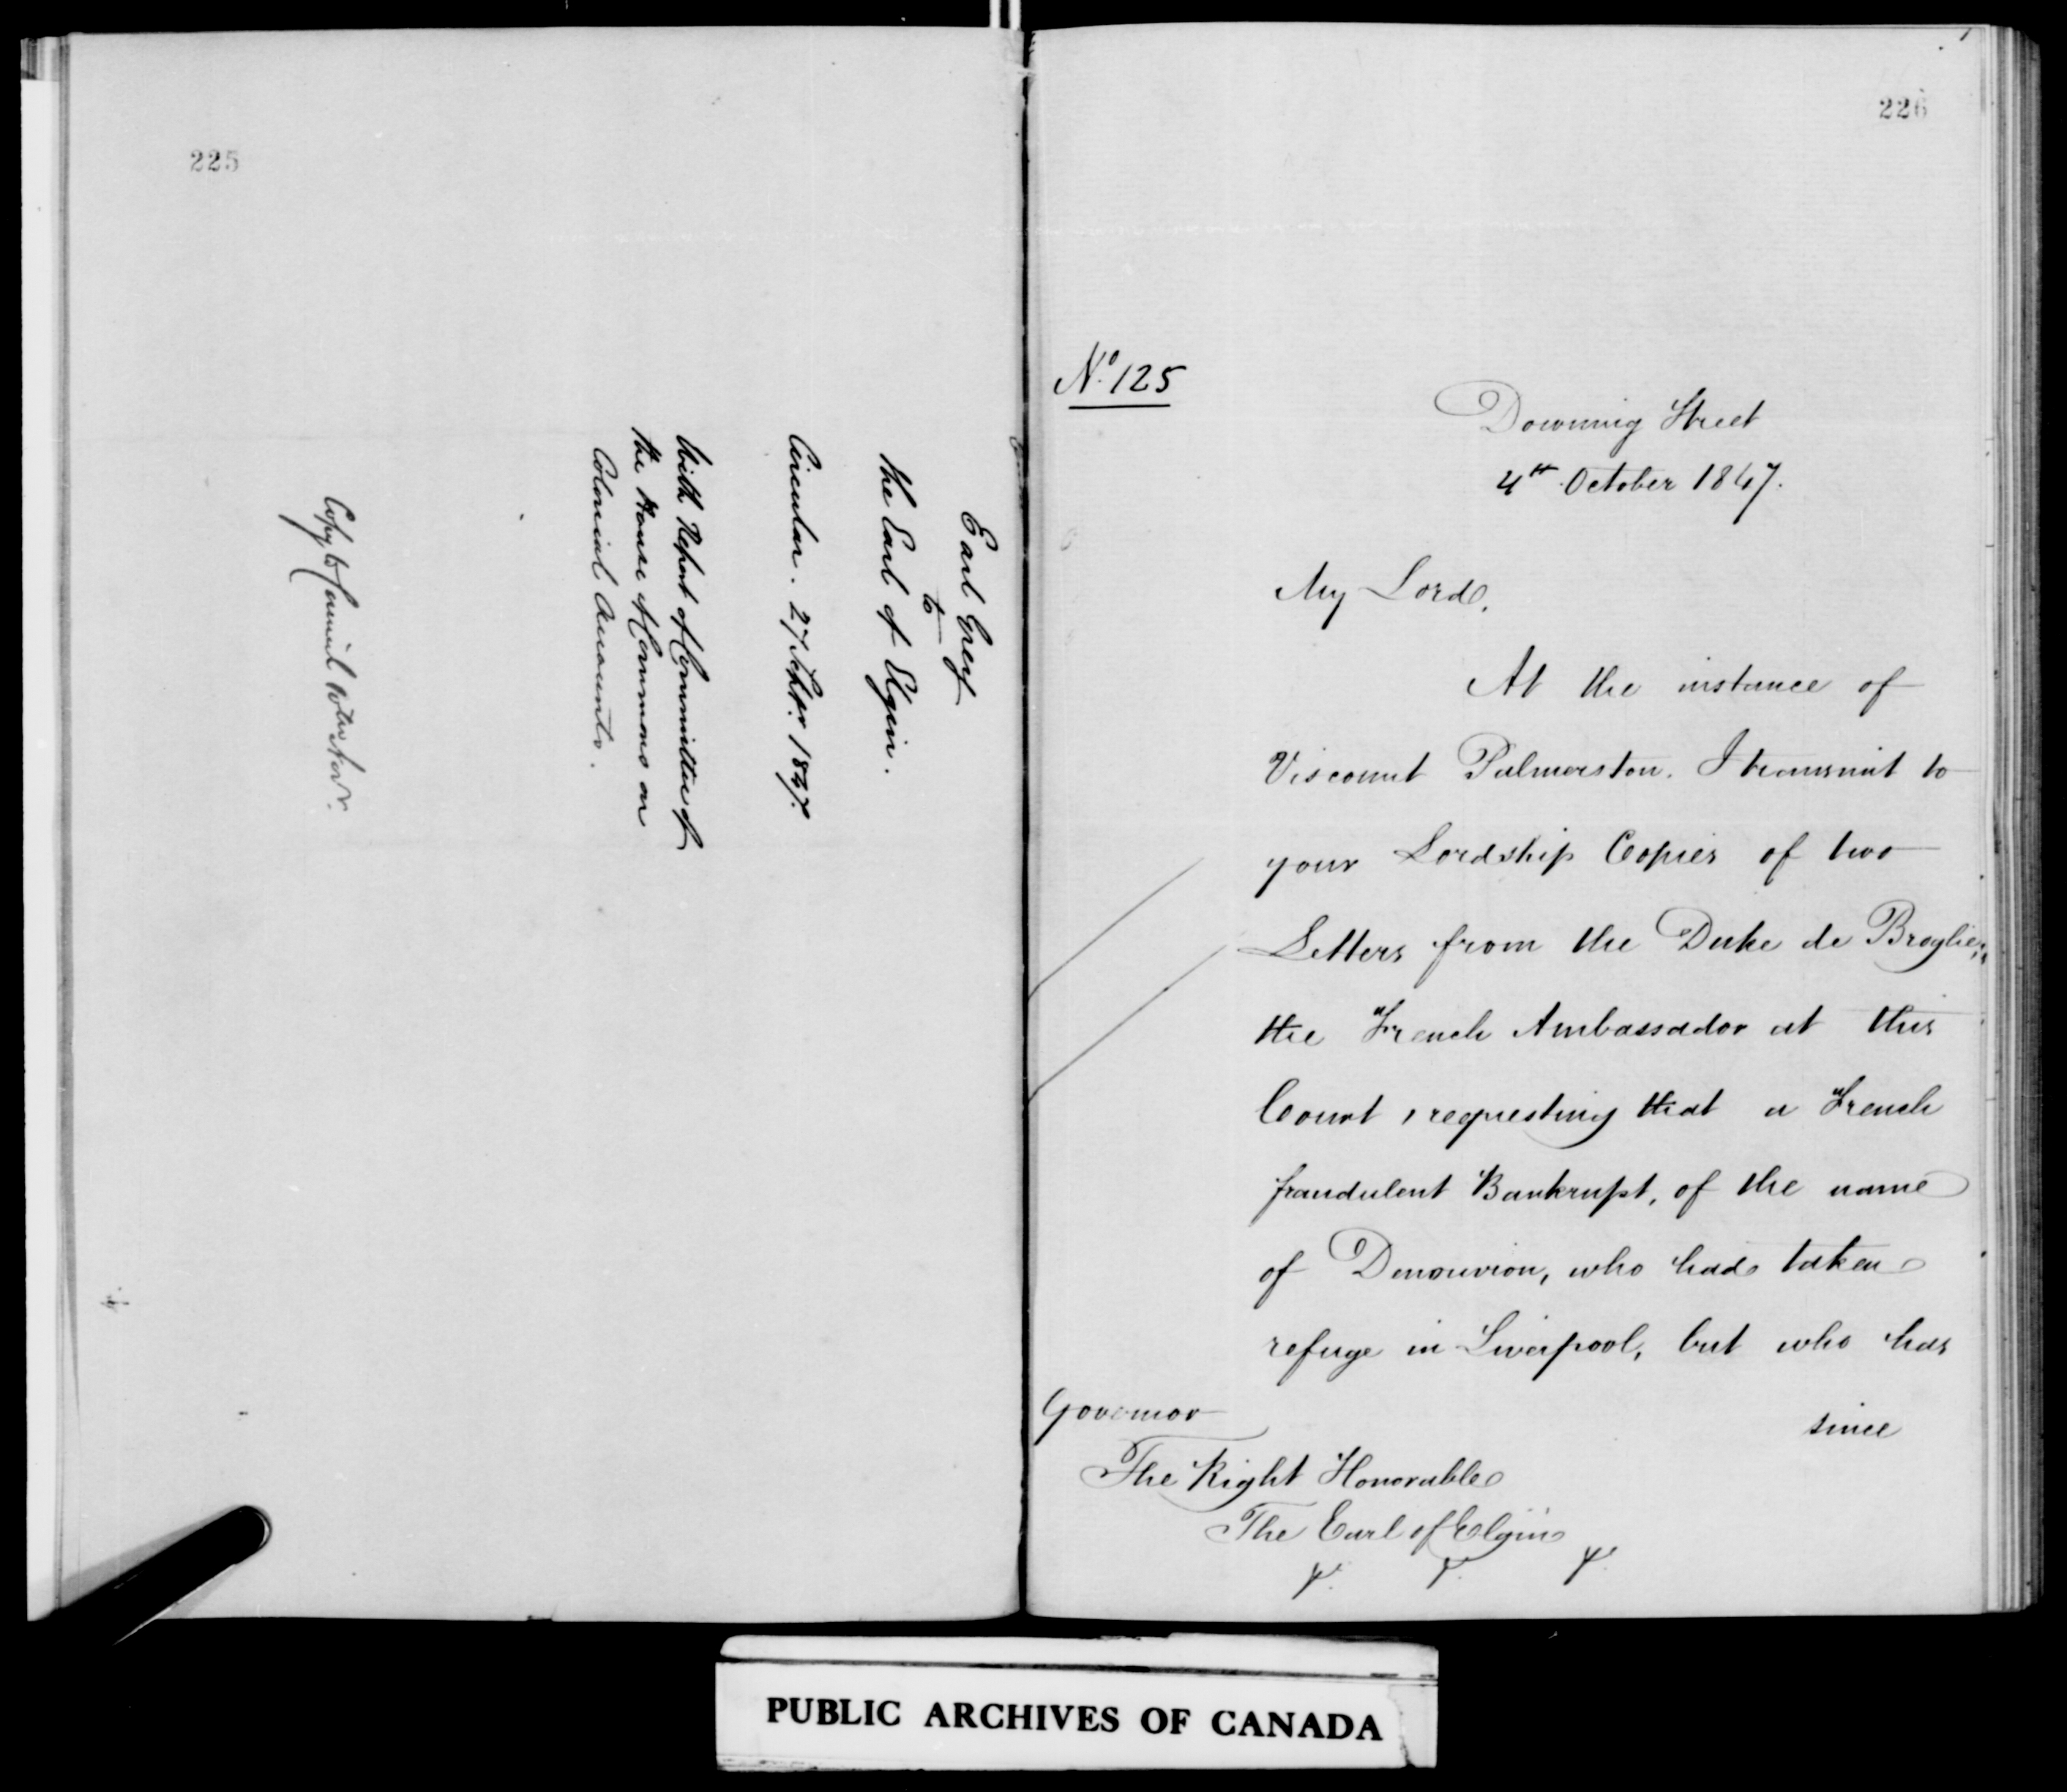 225
Earl Grey
to
the Earl of Elgin.
Circular. 27 Septr. 1847.
With Report of Committee of
the House of Commons on
Colonial Accounts.
Copy to
226
No. 125
Downing Street
4th October 1847.
My Lord,
At the instance of
Viscount Palmerston. I transmit to
your Lordship Copies of two
Letters from the Duke de Broglie,
the French Ambassador at this
Court, requesting that a French
fraudulent Bankrupt, of the name
of Denouvion, who had taken
refuge in Liverpool, but who has
since
Governor
The Right Honorable
The Earl of Elgin
PUBLIC ARCHIVES OF CANADA